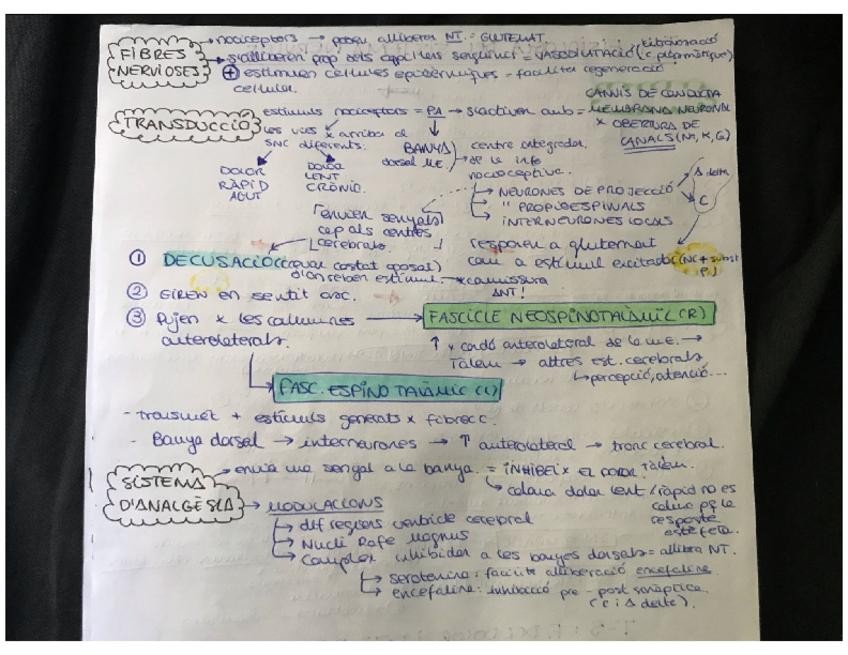 FIBRES NERVIOSES
nociceptors → poden alliberar NT. GLUTEMAT
s'alliberen prop dels capil·lars sanguinis = VASODILATACIÓ (extravasació
(+) estimulen cèl·lules epidèrmiques - facilitar regeneració
cel·lular.
TRANSDUCCIÓ
estímuls nociceptors = PA → s'activen amb =
CANVIS DE CONDUCTA
MEMBRANA NEURONAL
x OBERTURA DE
CANALS
les vies x arribar al
SNC diferents.
BANYA
dorsal ME.
centre integrador
de la info
nociceptiva.
DOLOR
RÀPID
AGUT
DOLOR
LENT
CRÒNIC.
→ NEURONES DE PROJECCIÓ
→ " PROPIOESPINALS
→ INTERNEURONES LOCALS
Δ delta
C
envien senyals
cap als centres
cerebrals.
responen a glutemat
com a estímul excitador (NC + subst
P.)
① DECUSACIÓ (creuar costat oposat)
d'on reben estímul. → x comissura
ANT!
② GIREN en sentit asc.
③ Pujen x les columnes
anterolaterals.
→ FASCICLE NEOSPINOTALÀMIC (R)
↑ x cordó anterolateral de la m.E. →
Tàlem → altres est. cerebrals
↳ percepció, atenció...
↳ FASC. ESPINOTALÀMIC (L)
- transmet + estímuls generats x fibres C.
- Banya dorsal → interneurones → ↑ anterolateral → tronc cerebral.
SISTEMA D'ANALGÈSIA
→ envia una senyal a la banya. = INHIBEIX EL DOLOR
↳ calma dolor lent / ràpid no es
calma pq la
resposta
està feta.
→ MODULACIONS
↳ dif regions ventricle cerebral
↳ Nucli Rafe Magnus
↳ Complex inhibidor a les banyes dorsals = allibra NT.
↳ serotonina: facilita alliberació encefaline
↳ encefaline: inhibició pre - post sinàptica
(C i Δ delta).